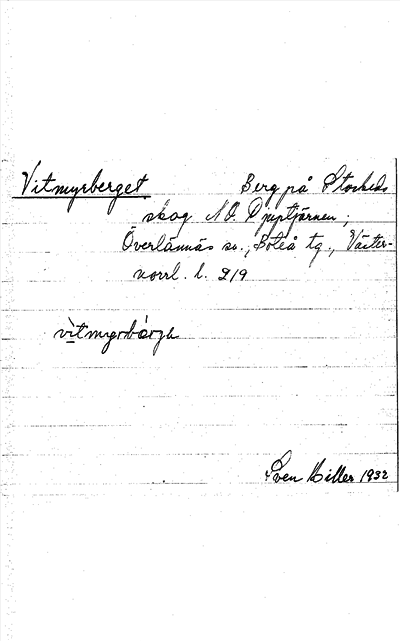 Vitmyrberget Berg på Stocheds
skog NO. Djuptjärnen;
Överlännäs sn., Boteå tg., Väster-
norrl. l. 219
vìtmyrbärjə
Sven Hiller 1932